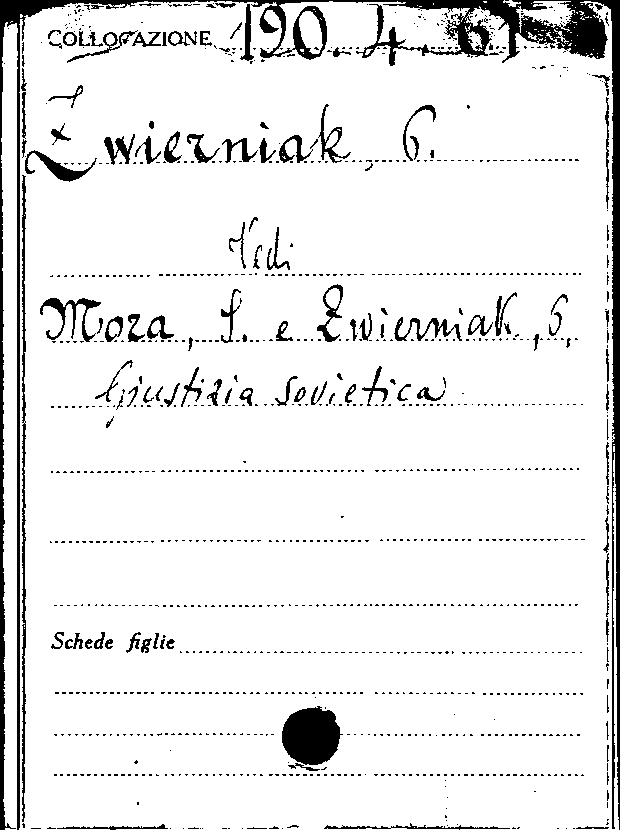 COLLOCAZIONE 190.4.61
Zwierniak, G.
Vedi
Mora, S. e Zwierniak, G.
Giustizia sovietica
Schede figlie